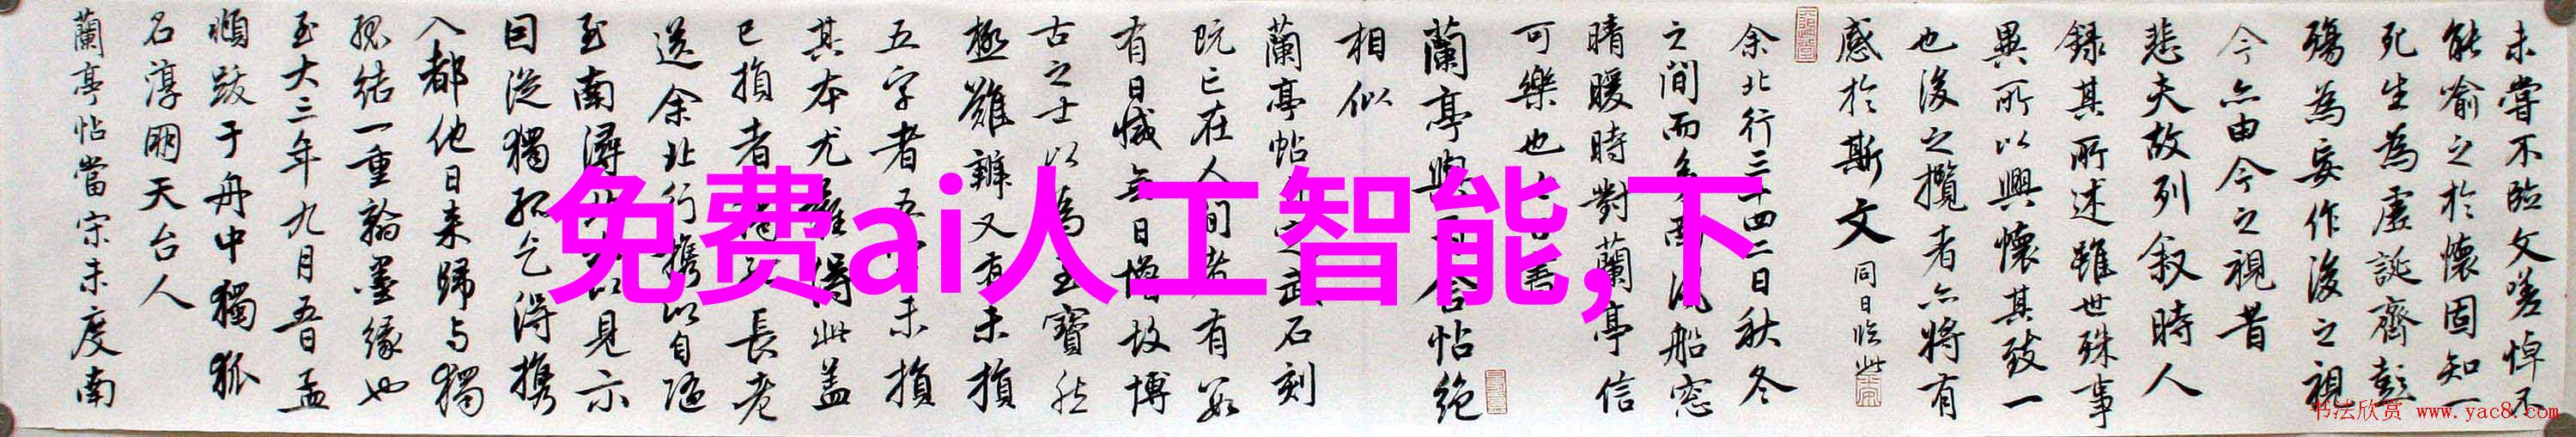 未嘗不臨文嗟悼不
能喻之於懷固知一
死生為虛誕齊彭
殤為妄作後之視
今亦由今之視昔
悲夫故列叙時人
錄其所述雖世殊事
異所以興懷其致一
也後之攬者亦將有
感於斯文 同日臨此
余北行三十四二日秋冬
之間而多南風船窓
晴暖時對蘭亭信
可樂也
蘭亭與丙舍帖絶
相似
蘭亭帖自定武石刻
既亡在人間者有數
有日減無日增故博
古之士以為至寶然
極難辨又有未損
五字者五字未損
其本尤難得此蓋
已損者獨孤長老
送余北行攜以自隨
至南潯北出以見示
因從獨孤乞得攜
入都他日來歸与獨
孤結一重翰墨緣也
至大三年九月五日孟
頫跋于舟中獨孤
名淳朋天台人
蘭亭帖當宋未度南
免费ai人工智能,下
书法欣赏 www.yac8.com